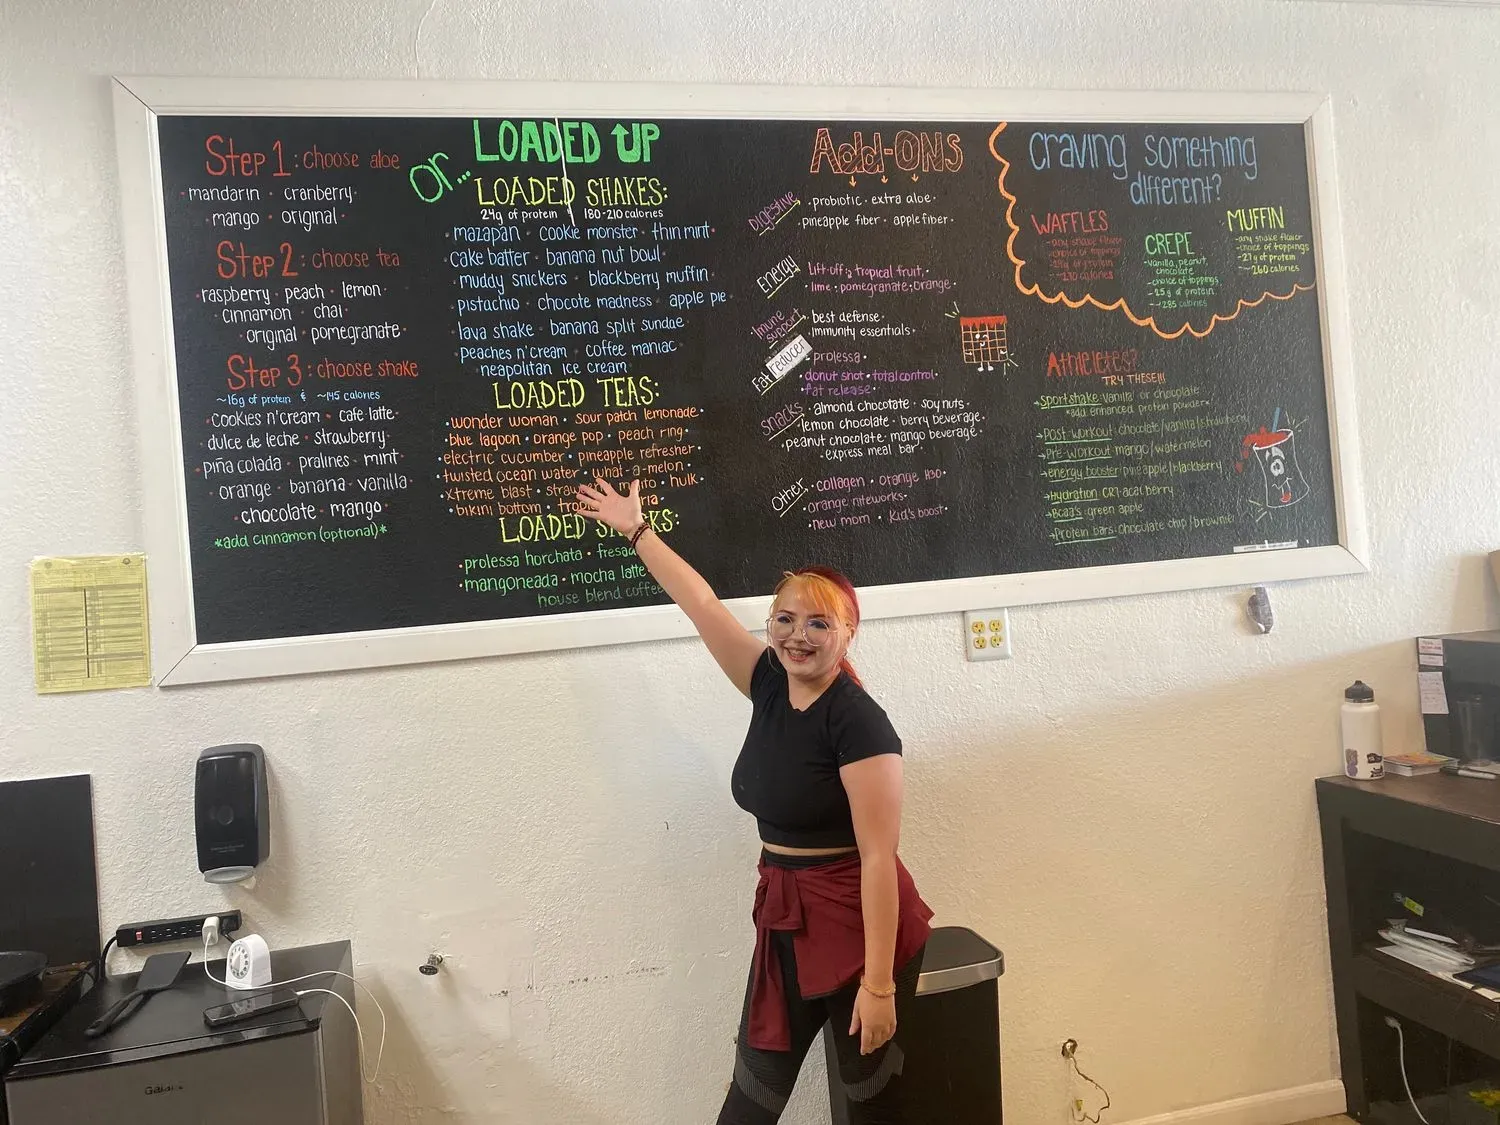 Step 1: choose aloe
mandarin · cranberry
mango · original
Step 2: choose tea
raspberry · peach · lemon
cinnamon · chai
original · pomegranate
Step 3: choose shake
~16g of protein & ~145 calories
cookies n'cream · cafe latte
dulce de leche · strawberry
piña colada · pralines · mint
orange · banana · vanilla
chocolate · mango
*add cinnamon (optional)*
Or...
LOADED UP
LOADED SHAKES:
24g of protein 180-210 calories
mazapan · cookie monster · thin mint
cake batter · banana nut bowl
muddy snickers · blackberry muffin
pistachio · chocote madness · apple pie
lava shake · banana split sundae
peaches n'cream · coffee maniac
neapolitan ice cream
LOADED TEAS:
wonder woman · sour patch lemonade
blue lagoon · orange pop · peach ring
electric cucumber · pineapple refresher
twisted ocean water · what-a-melon
xtreme blast · hulk
bikini bottom
LOADED
prolessa horchata
mangoneada · mocha latte
house blend coffee
Add-ONS
Digestive
probiotic · extra aloe
pineapple fiber · apple fiber
Energy
Lift-off: tropical fruit,
lime · pomegranate · orange
Imune support
best defense
immunity essentials
Fat reducer
prolessa
donut shot · total control
fat release
Snacks
almond chocolate · soy nuts
lemon chocolate · berry beverage
peanut chocolate · mango beverage
express meal bar
Other
collagen · orange H3O
orange niteworks
new mom · Kid's boost
Craving something
different?
WAFFLES
-any shake flavor
-choice of toppings
of protein
calories
CREPE
-vanilla, peanut,
chocolate
-choice of toppings
-25g of protein
~285 calories
MUFFIN
-any shake flavor
-choice of toppings
-27g of protein
~260 calories
Athletetes?
TRY THESE!!!
sportshake: vanilla or chocolate
*add enhanced protein powder*
Post-workout: chocolate/vanilla/
Pre-workout: mango/watermelon
energy booster: pineapple/blackberry
Hydration: CR7-acai berry
BCAA's: green apple
Protein bars: chocolate chip/brownie